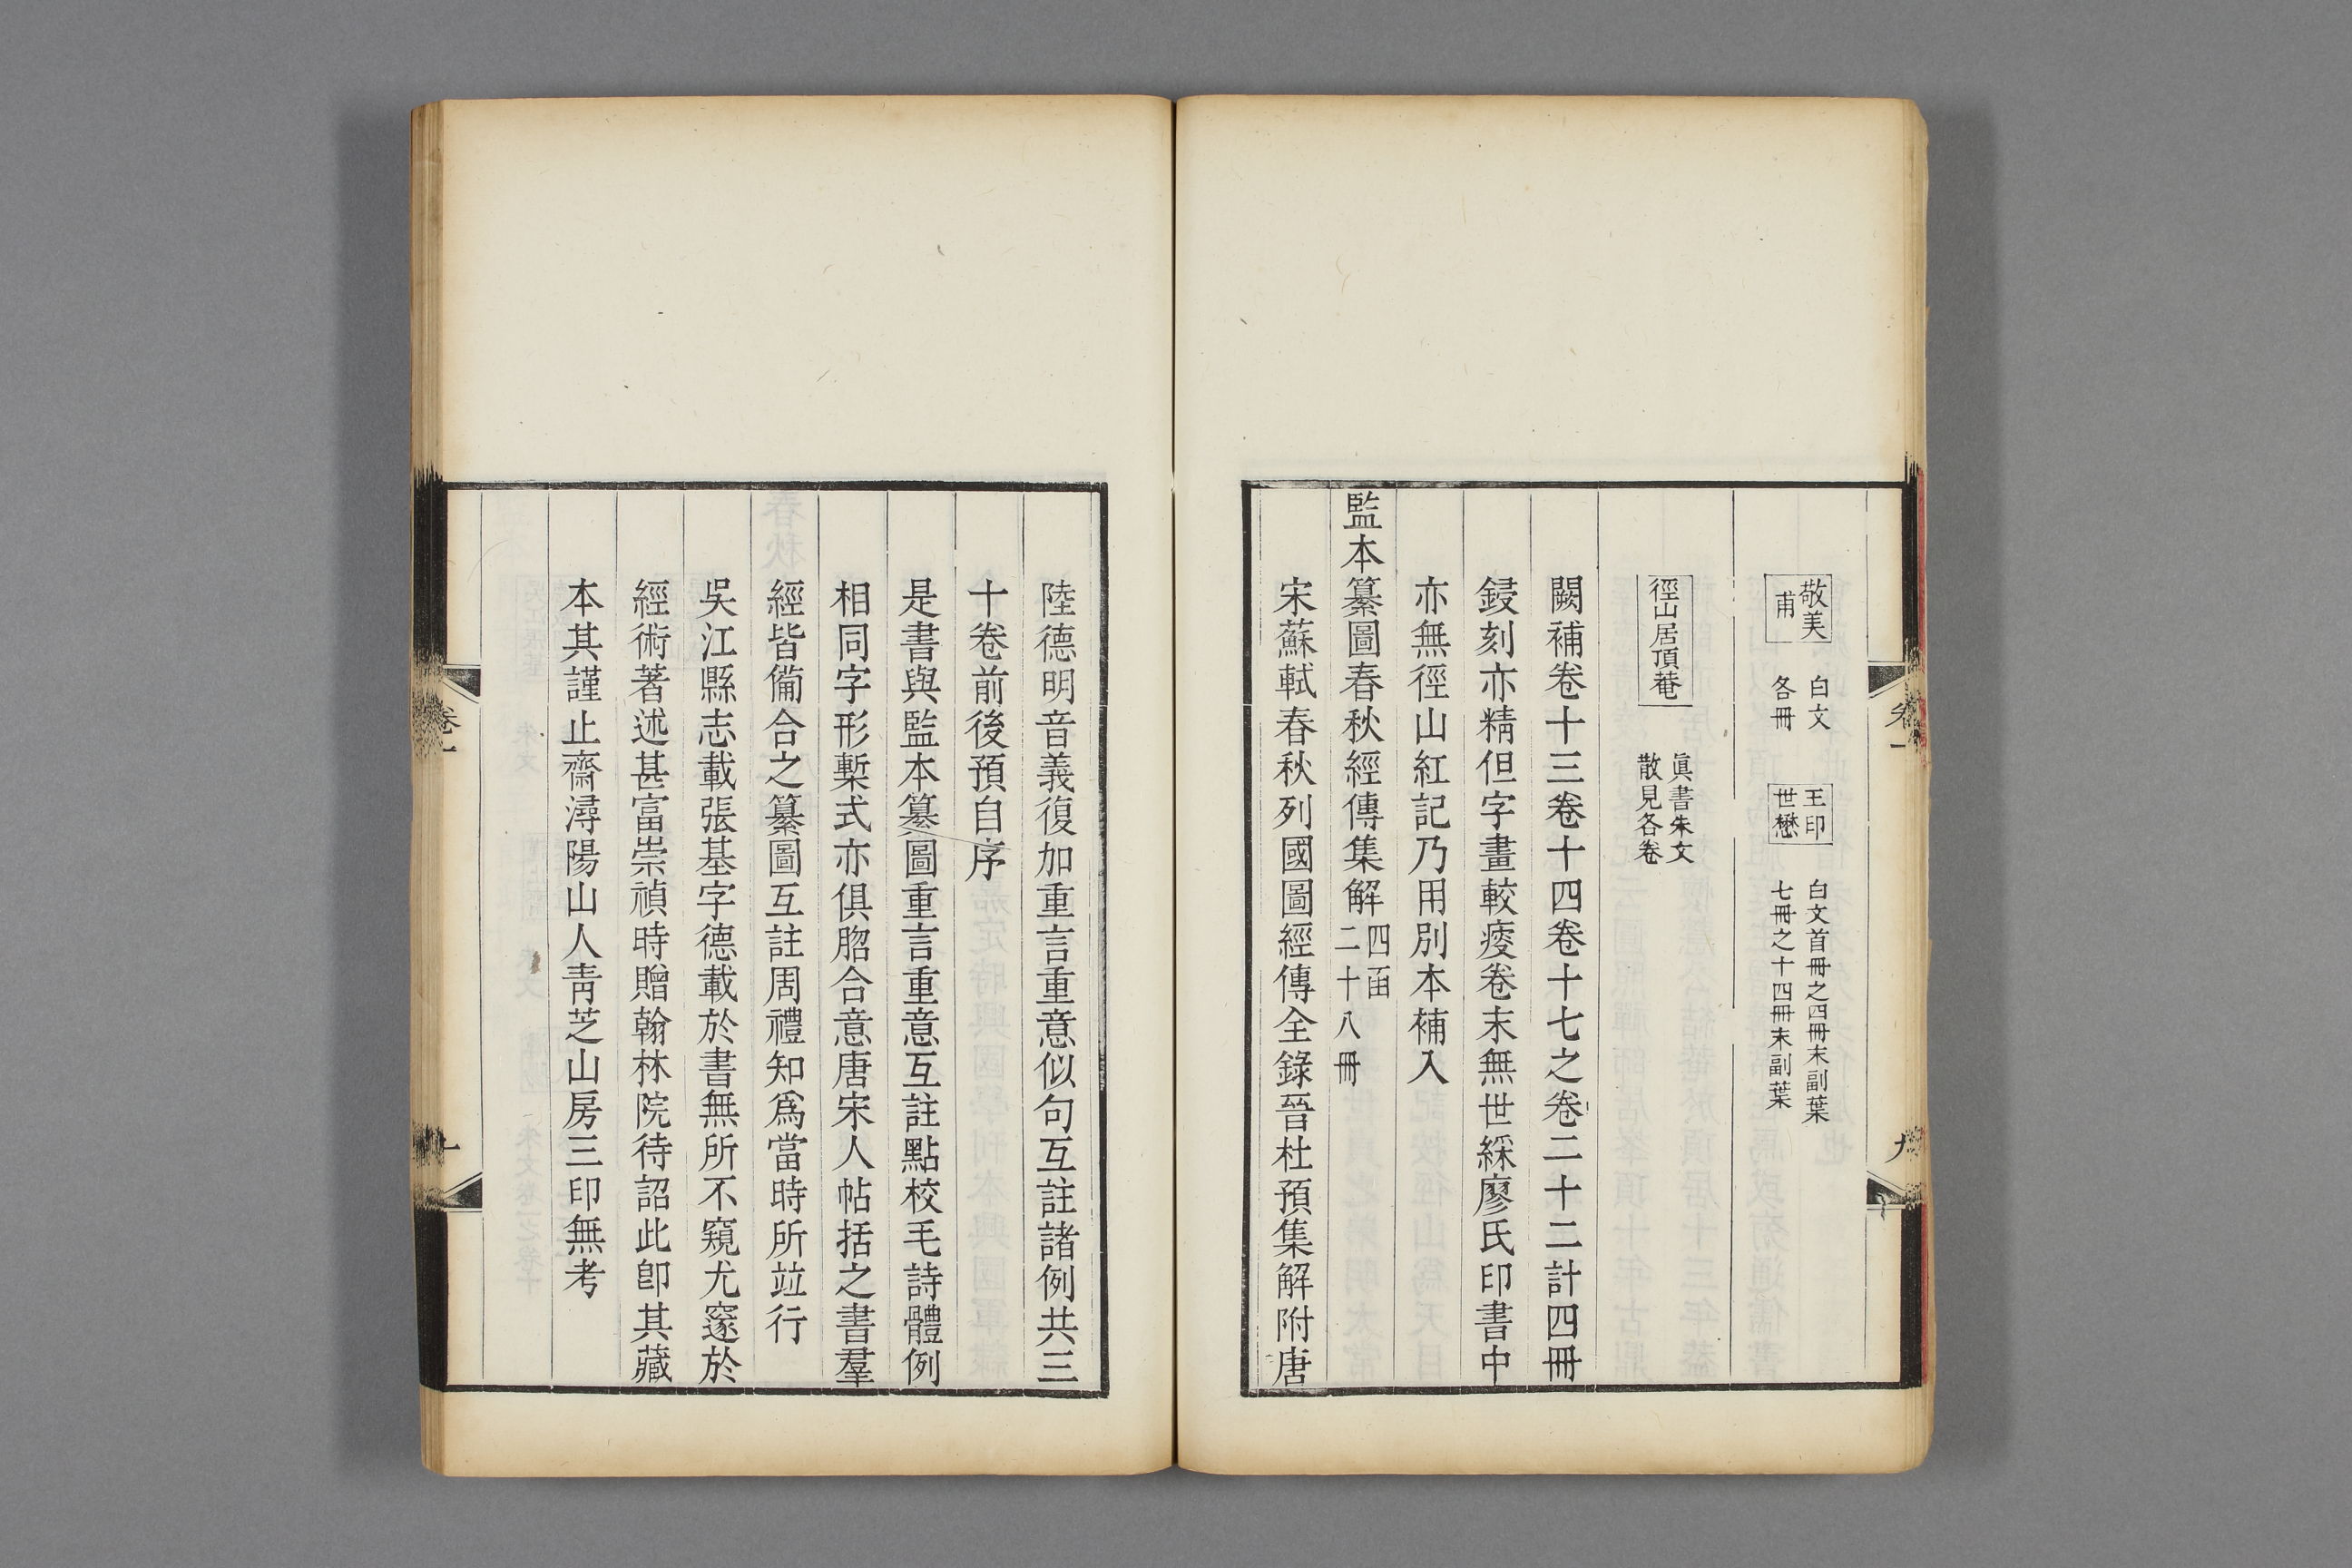 敬美甫
白文各冊
王印世懋
白文首冊之四冊末副葉七冊之十四冊末副葉
徑山居頂菴
眞書朱文散見各卷
闕補卷十三卷十四卷十七之卷二十二計四冊
鋟刻亦精但字畫較瘦卷末無世綵廖氏印書中
亦無徑山紅記乃用別本補入
監本纂圖春秋經傳集解四函二十八冊
宋蘇軾春秋列國圖經傳全錄晉杜預集解附唐
陸德明音義復加重言重意似句互註諸例共三
十卷前後預自序
是書與監本纂圖重言重意互註點校毛詩體例
相同字形槧式亦俱脗合意唐宋人帖括之書羣
經皆備合之纂圖互註周禮知爲當時所竝行
吳江縣志載張基字德載於書無所不窺尤邃於
經術著述甚富崇禎時贈翰林院待詔此卽其藏
本其謹止齋潯陽山人靑芝山房三印無考
卷一
九
卷一
十